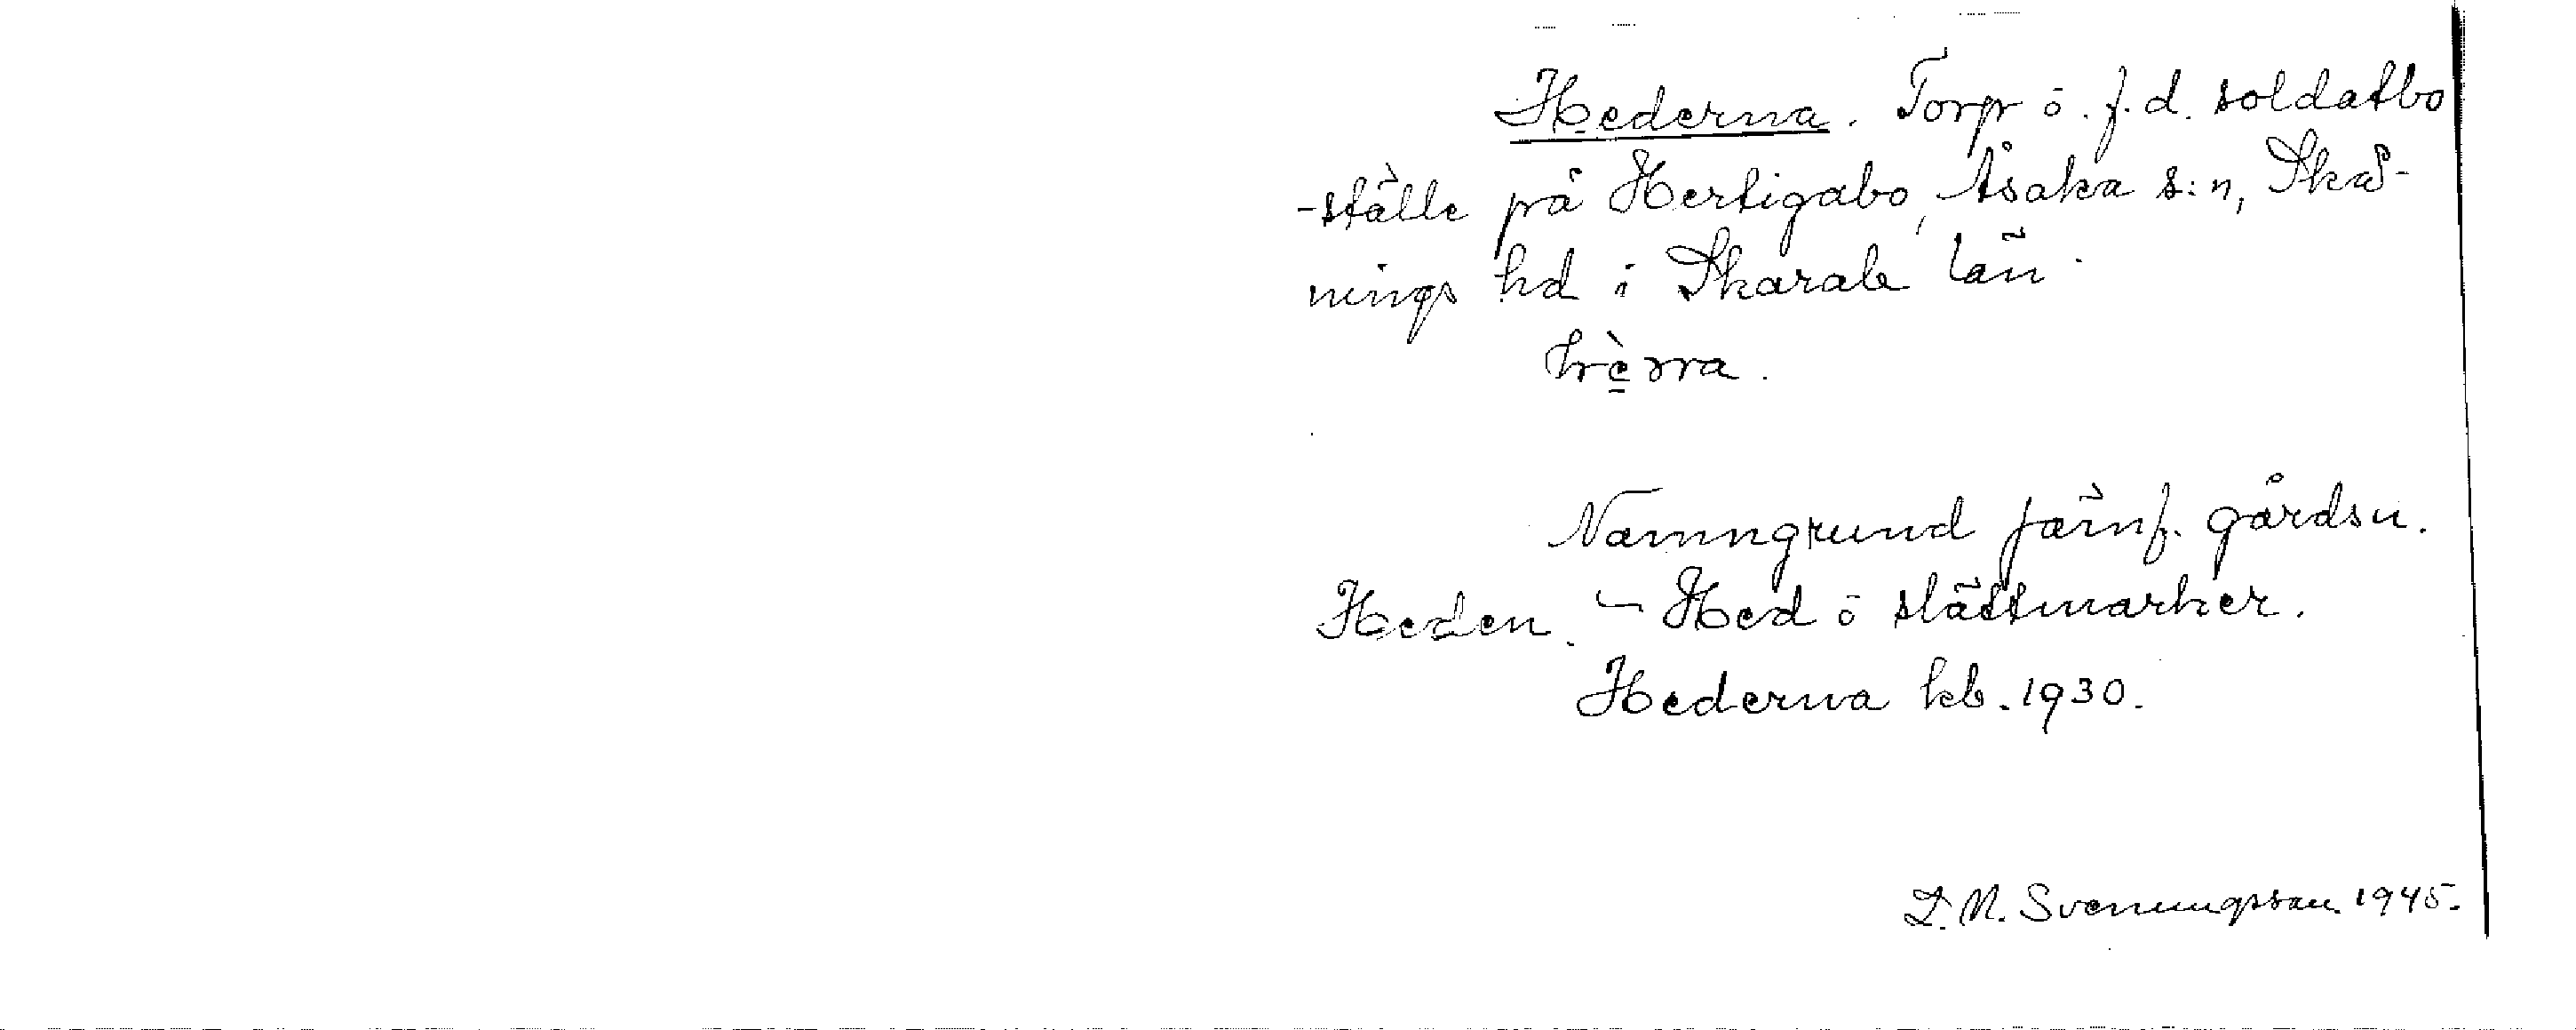 Hederna. Torp o. f.d. soldatbo
-ställe på Hertigabo, Åsaka s:n, Skå-
nings hd i Skarab län.
hèrra.
Namngrund jämf. gårdsn.
Heden. – Hed o slättmarker.
Hederna kb. 1930.
D. N. Svenungsson 1945.